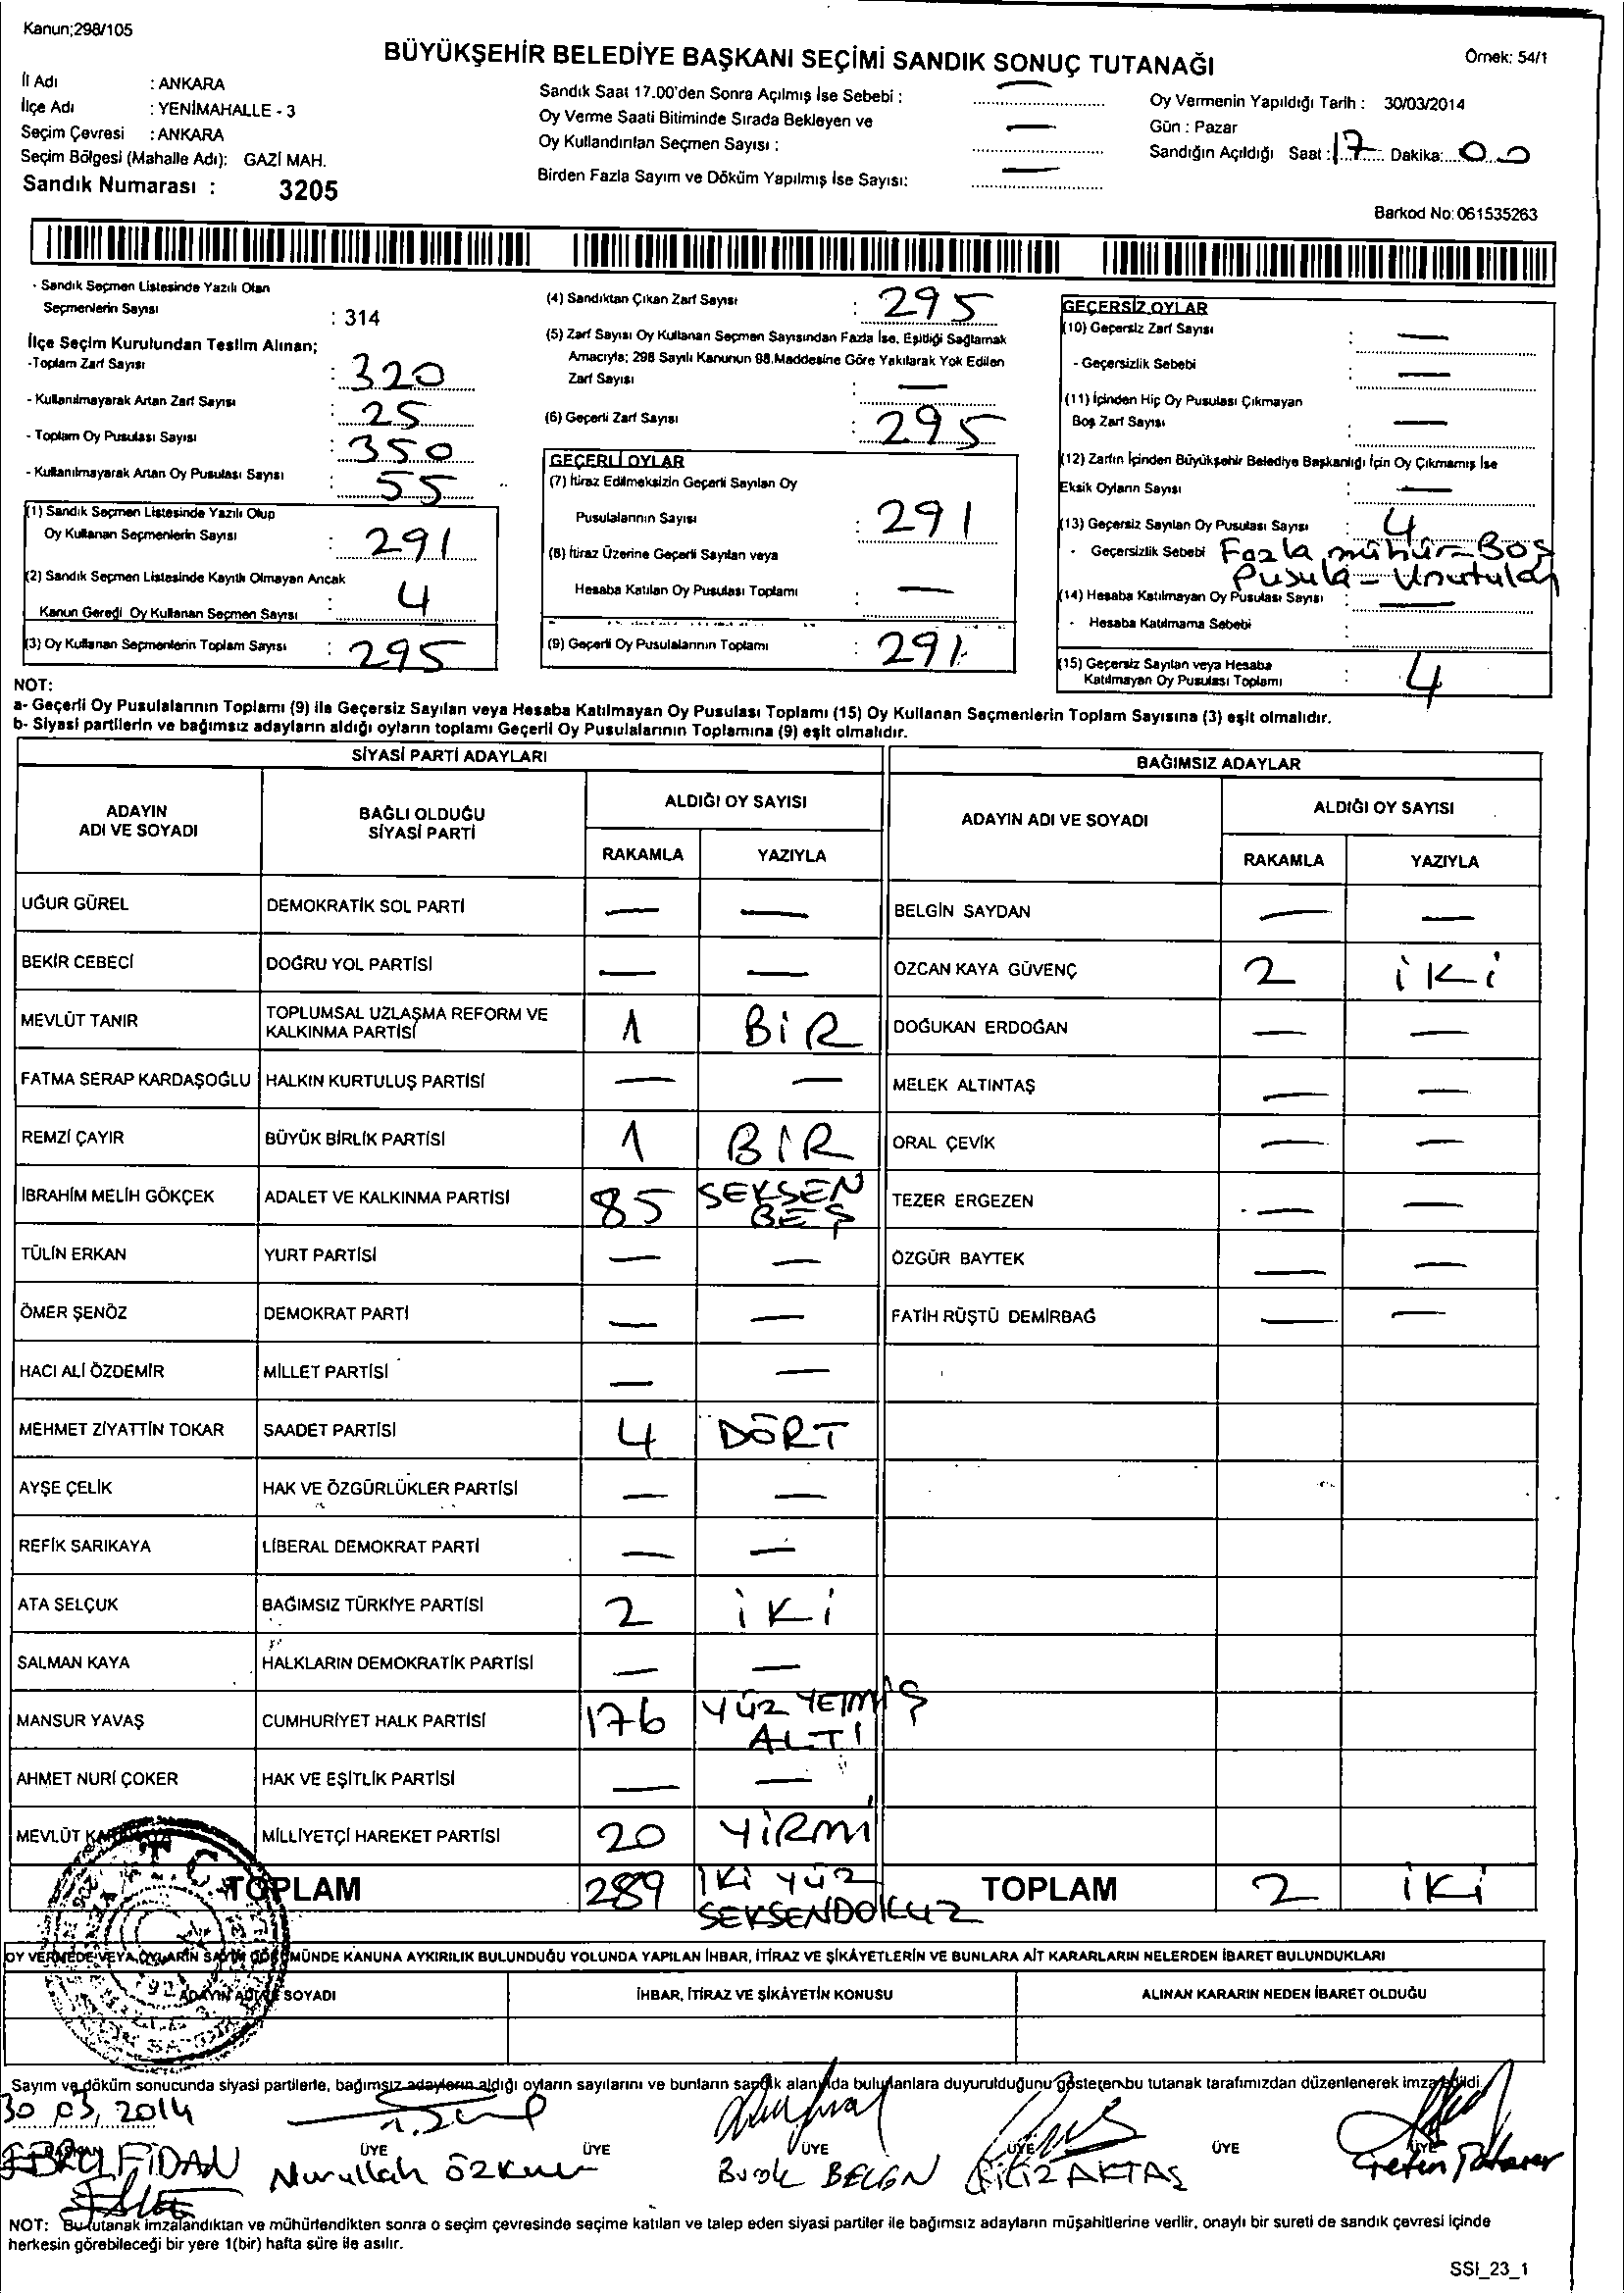 Kanun;298/105
BÜYÜKŞEHİR BELEDİYE BAŞKANI SEÇİMİ SANDIK SONUÇ TUTANAĞI
Örnek: 54/1
İl Adı : ANKARA
İlçe Adı : YENİMAHALLE - 3
Seçim Çevresi : ANKARA
Seçim Bölgesi (Mahalle Adı): GAZİ MAH.
Sandık Numarası : 3205
Sandık Saat 17.00'den Sonra Açılmış İse Sebebi : —
Oy Verme Saati Bitiminde Sırada Bekleyen ve
Oy Kullandırılan Seçmen Sayısı : —
Birden Fazla Sayım ve Döküm Yapılmış İse Sayısı: —
Oy Vermenin Yapıldığı Tarih : 30/03/2014
Gün : Pazar
Sandığın Açıldığı Saat : 17 Dakika: 00
Barkod No: 061535263
- Sandık Seçmen Listesinde Yazılı Olan
Seçmenlerin Sayısı : 314
İlçe Seçim Kurulundan Teslim Alınan;
-Toplam Zarf Sayısı : 320
- Kullanılmayarak Artan Zarf Sayısı : 25
- Toplam Oy Pusulası Sayısı : 350
- Kullanılmayarak Artan Oy Pusulası Sayısı : 55
(1) Sandık Seçmen Listesinde Yazılı Olup
Oy Kullanan Seçmenlerin Sayısı : 291
(2) Sandık Seçmen Listesinde Kayıtlı Olmayan Ancak
Kanun Gereği Oy Kullanan Seçmen Sayısı : 4
(3) Oy Kullanan Seçmenlerin Toplam Sayısı : 295
(4) Sandıktan Çıkan Zarf Sayısı : 295
(5) Zarf Sayısı Oy Kullanan Seçmen Sayısından Fazla İse, Eşitliği Sağlamak
Amacıyla; 298 Sayılı Kanunun 98.Maddesine Göre Yakılarak Yok Edilen
Zarf Sayısı : —
(6) Geçerli Zarf Sayısı : 295
GEÇERLİ OYLAR
(7) İtiraz Edilmeksizin Geçerli Sayılan Oy
Pusulalarının Sayısı : 291
(8) İtiraz Üzerine Geçerli Sayılan veya
Hesaba Katılan Oy Pusulası Toplamı : —
(9) Geçerli Oy Pusulalarının Toplamı : 291
GEÇERSİZ OYLAR
(10) Geçersiz Zarf Sayısı : —
- Geçersizlik Sebebi : —
(11) İçinden Hiç Oy Pusulası Çıkmayan
Boş Zarf Sayısı : —
(12) Zarfın İçinden Büyükşehir Belediye Başkanlığı İçin Oy Çıkmamış İse
Eksik Oyların Sayısı : —
(13) Geçersiz Sayılan Oy Pusulası Sayısı : 4
- Geçersizlik Sebebi Fazla mühür-Boş
Pusula - Unutulan
(14) Hesaba Katılmayan Oy Pusulası Sayısı : —
- Hesaba Katılmama Sebebi :
(15) Geçersiz Sayılan veya Hesaba
Katılmayan Oy Pusulası Toplamı : 4
NOT:
a- Geçerli Oy Pusulalarının Toplamı (9) ile Geçersiz Sayılan veya Hesaba Katılmayan Oy Pusulası Toplamı (15) Oy Kullanan Seçmenlerin Toplam Sayısına (3) eşit olmalıdır.
b- Siyasi partilerin ve bağımsız adayların aldığı oyların toplamı Geçerli Oy Pusulalarının Toplamına (9) eşit olmalıdır.
SİYASİ PARTİ ADAYLARI BAĞIMSIZ ADAYLAR
ADAYIN ADI VE SOYADI BAĞLI OLDUĞU SİYASİ PARTİ ALDIĞI OY SAYISI ADAYIN ADI VE SOYADI ALDIĞI OY SAYISI
RAKAMLA YAZIYLA RAKAMLA YAZIYLA
UĞUR GÜREL DEMOKRATİK SOL PARTİ — — BELGİN SAYDAN — —
BEKİR CEBECİ DOĞRU YOL PARTİSİ — — ÖZCAN KAYA GÜVENÇ 2 İKİ
MEVLÜT TANIR TOPLUMSAL UZLAŞMA REFORM VE KALKINMA PARTİSİ 1 BİR DOĞUKAN ERDOĞAN — —
FATMA SERAP KARDAŞOĞLU HALKIN KURTULUŞ PARTİSİ — — MELEK ALTINTAŞ — —
REMZİ ÇAYIR BÜYÜK BİRLİK PARTİSİ 1 BİR ORAL ÇEVİK — —
İBRAHİM MELİH GÖKÇEK ADALET VE KALKINMA PARTİSİ 85 SEKSEN BEŞ TEZER ERGEZEN — —
TÜLİN ERKAN YURT PARTİSİ — — ÖZGÜR BAYTEK — —
ÖMER ŞENÖZ DEMOKRAT PARTİ — — FATİH RÜŞTÜ DEMİRBAĞ — —
HACI ALİ ÖZDEMİR MİLLET PARTİSİ — —
MEHMET ZİYATTİN TOKAR SAADET PARTİSİ 4 DÖRT
AYŞE ÇELİK HAK VE ÖZGÜRLÜKLER PARTİSİ — —
REFİK SARIKAYA LİBERAL DEMOKRAT PARTİ — —
ATA SELÇUK BAĞIMSIZ TÜRKİYE PARTİSİ 2 İKİ
SALMAN KAYA HALKLARIN DEMOKRATİK PARTİSİ — —
MANSUR YAVAŞ CUMHURİYET HALK PARTİSİ 176 YÜZ YETMİŞ ALTI
AHMET NURİ ÇOKER HAK VE EŞİTLİK PARTİSİ — —
MEVLÜT MİLLİYETÇİ HAREKET PARTİSİ 20 YİRMİ
TOPLAM 289 İKİ YÜZ SEKSENDOKUZ TOPLAM 2 İKİ
OY VERMEDE VEYA OYLARIN SAYIM DÖKÜMÜNDE KANUNA AYKIRILIK BULUNDUĞU YOLUNDA YAPILAN İHBAR, İTİRAZ VE ŞİKÂYETLERİN VE BUNLARA AİT KARARLARIN NELERDEN İBARET BULUNDUKLARI
ADAYIN ADI VE SOYADI İHBAR, İTİRAZ VE ŞİKÂYETİN KONUSU ALINAN KARARIN NEDEN İBARET OLDUĞU
Sayım ve döküm sonucunda siyasi partilerle, bağımsız adayların aldığı oyların sayılarını ve bunların sandık alanında bulunanlara duyurulduğunu gösteren bu tutanak tarafımızdan düzenlenerek imza edildi.
30 03, 2014
BAŞKAN ÜYE ÜYE ÜYE ÜYE ÜYE ÜYE
EBRU FİDAN Nurullah Burak FİLİZ AKTAŞ
NOT: Bu tutanak imzalandıktan ve mühürlendikten sonra o seçim çevresinde seçime katılan ve talep eden siyasi partiler ile bağımsız adayların müşahitlerine verilir, onaylı bir sureti de sandık çevresi içinde
herkesin görebileceği bir yere 1(bir) hafta süre ile asılır.
SSİ_23_1